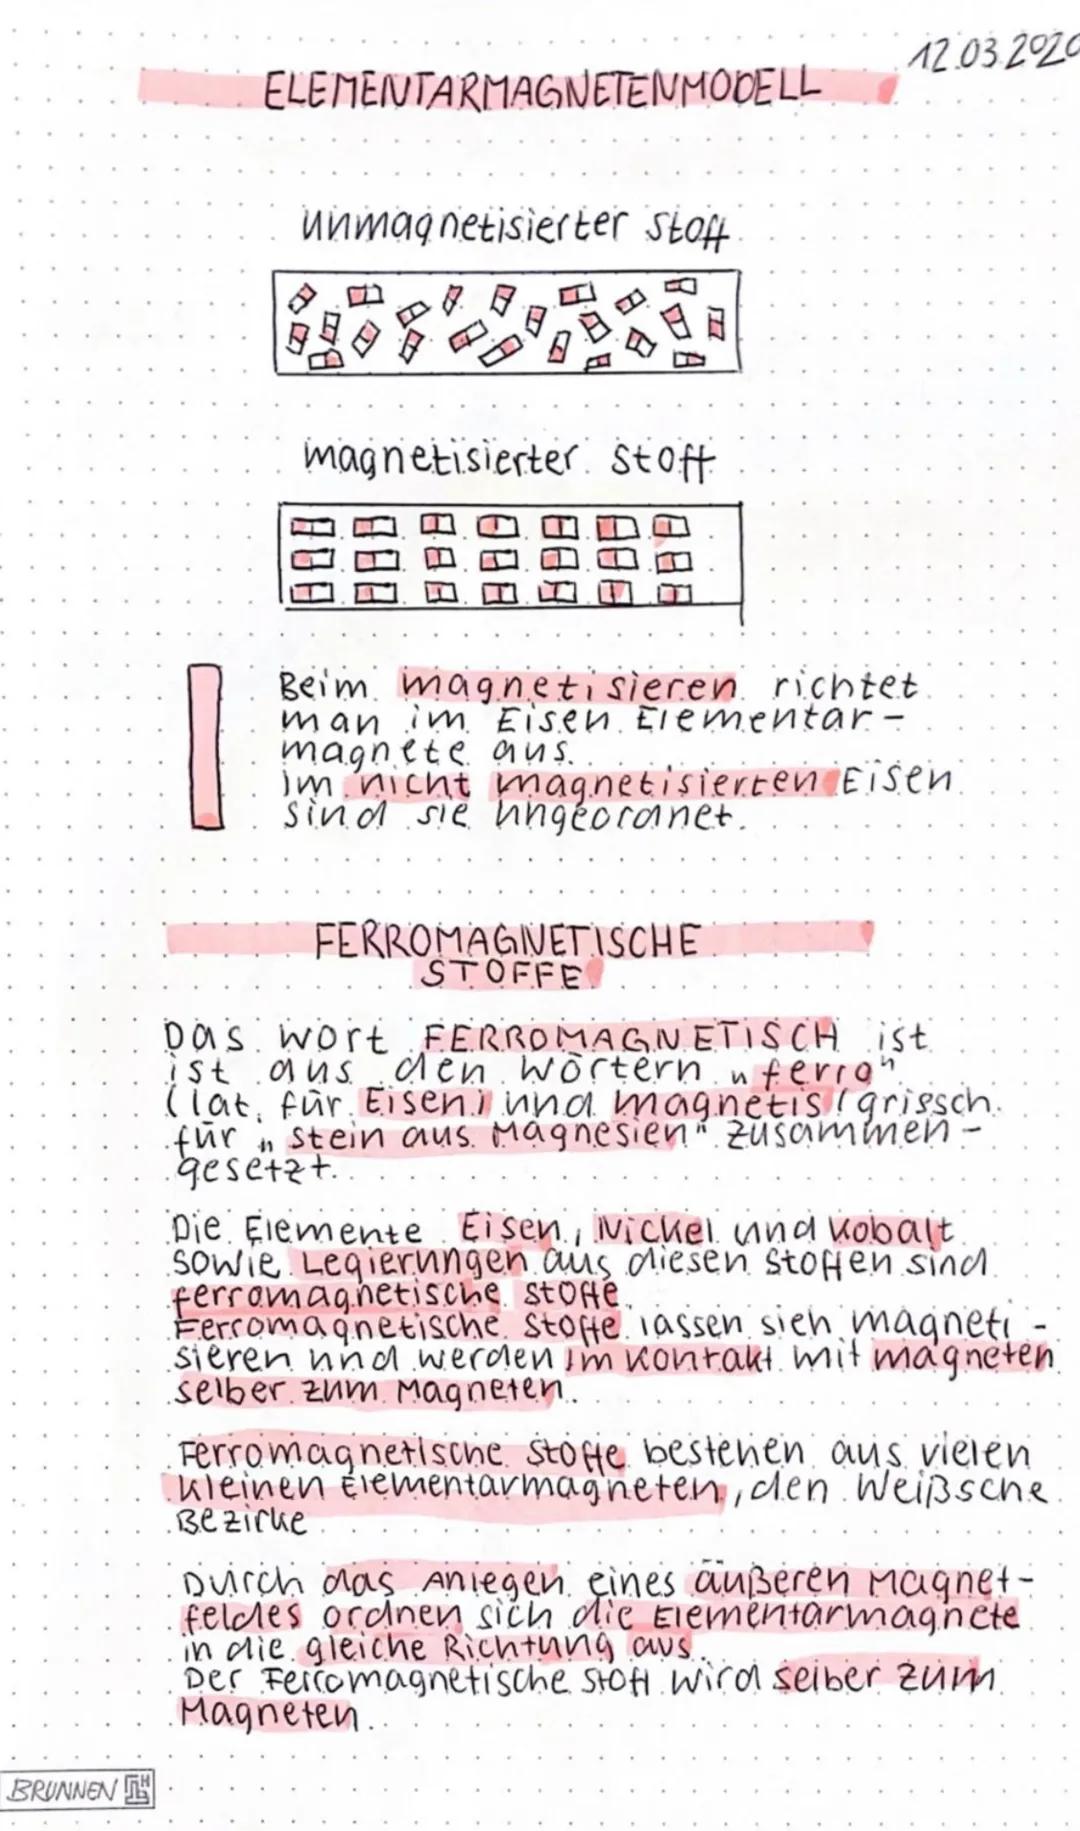 12.03.2020
ELEMENTARMAGNETENMODELL
unmagnetisierter Stoff
magnetisierter Stoff
Beim magnetisieren richtet
man im Eisen Elementar-
magnete aus.
Im nicht magnetisierten Eisen
sind sie ungeordnet.
FERROMAGNETISCHE
STOFFE
Das Wort FERROMAGNETISCH ist
ist aus den Wörtern „ferro"
(lat. für Eisen) und magnetis (grissch.
für „Stein aus Magnesien" zusammen-
gesetzt.
Die Elemente Eisen, Nickel und Kobalt
sowie Legierungen aus diesen Stoffen sind
ferromagnetische Stoffe.
Ferromagnetische Stoffe lassen sich magneti-
sieren und werden im Kontakt mit magneten
selber zum Magneten.
Ferromagnetische Stoffe bestehen aus vielen
kleinen Elementarmagneten, den Weißsche
Bezirke
Durch das Anlegen eines äußeren Magnet-
feldes ordnen sich die Elementarmagnete
in die gleiche Richtung aus.
Der Ferromagnetische Stoff wird selber zum
Magneten.
BRUNNEN